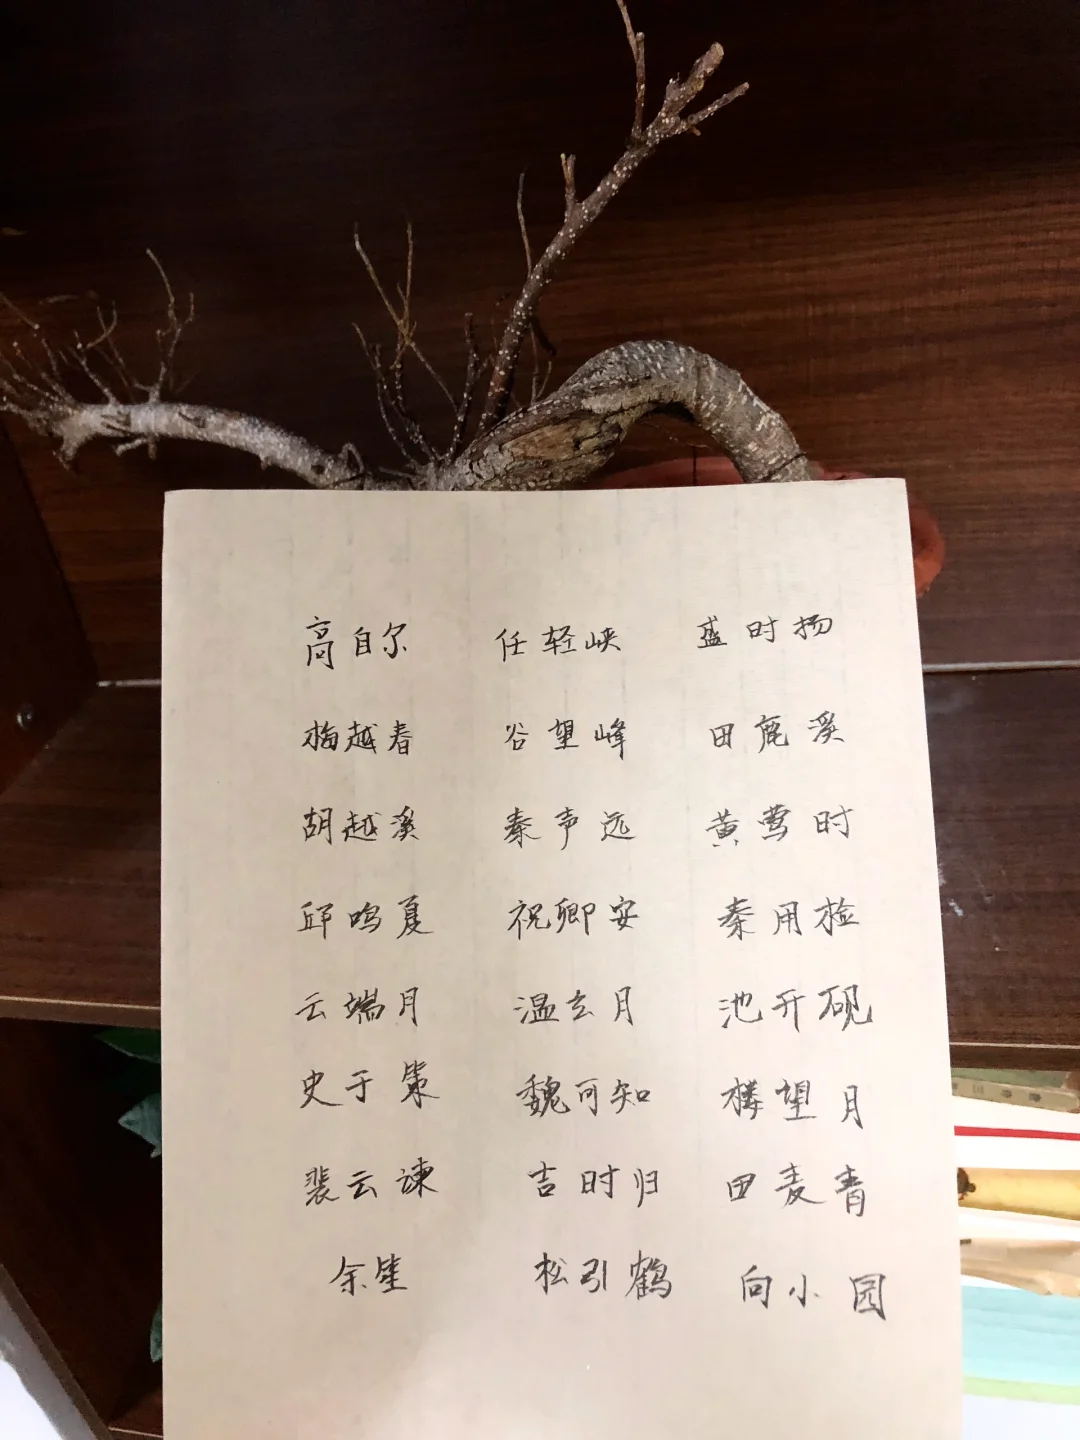 高自尔 任轻峡 盛时扬
梅越春 谷望峰 田鹿溪
胡越溪 秦声远 黄莺时
邱鸣夏 祝卿安 秦用检
云端月 温玄月 池开砚
史于策 魏可知 楼望月
裴云谏 吉时归 田麦青
余笙 松引鹤 向小园